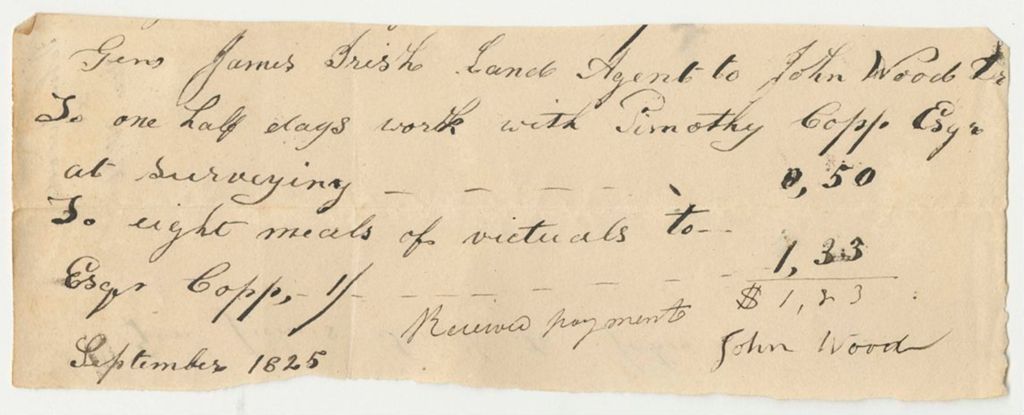 Genl James Irish Land Agent to John Wood Dr
To one half days work with Timothy Copp Esqr
at surveying _ _ _ _ _ _ 0,50
To eight meals of victuals to --
Esqr Copp, - 1/ _ _ _ _ _ _ _ 1,33
$ 1,83
Received payment
John Wood
September 1825